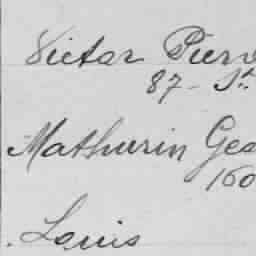 Victor Pierr
87 - St
Mathurin Geo
160
Louis